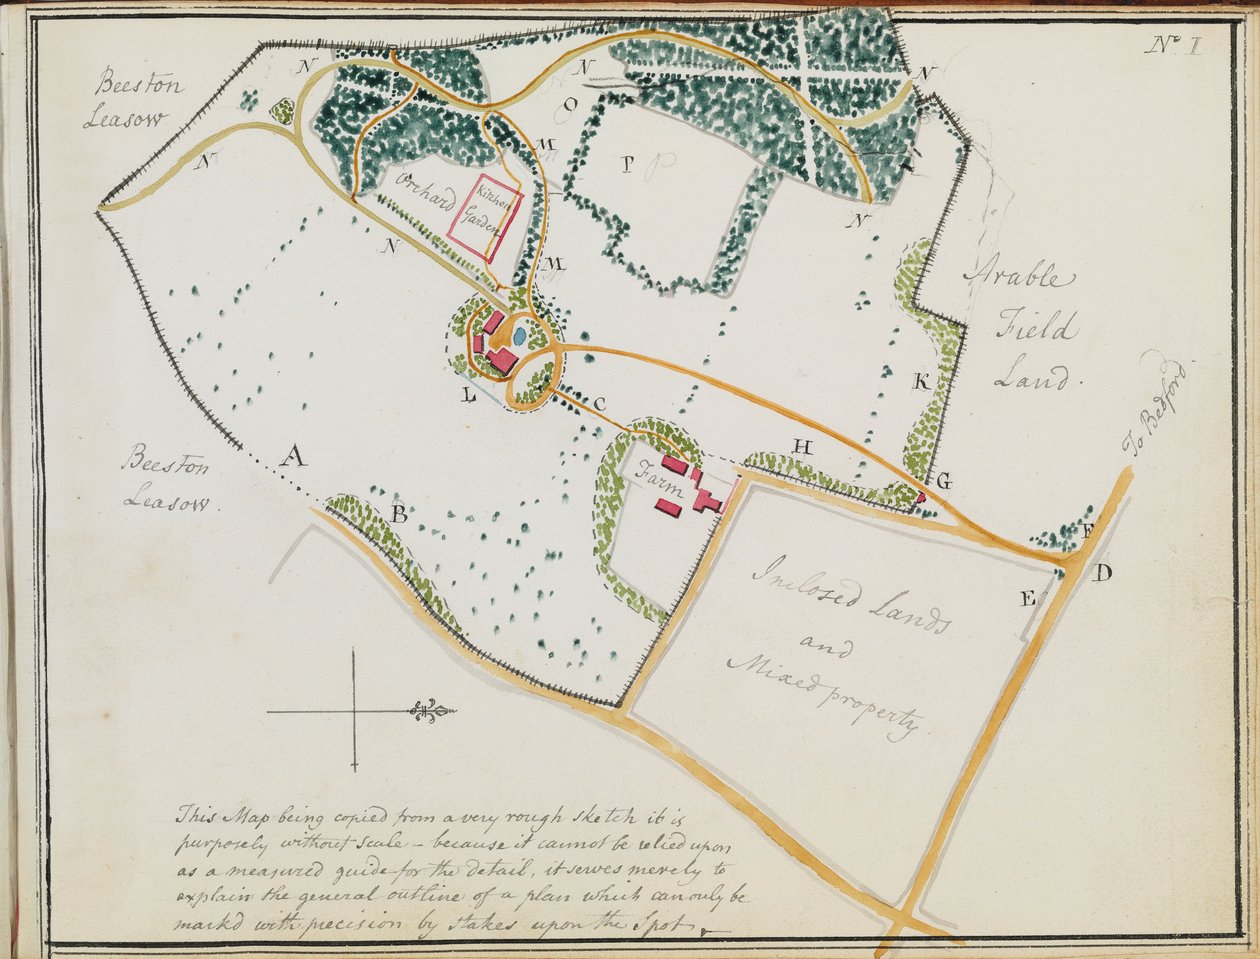 No I
Beeston
Leasow
N
N
N
N
O
M
P
P
N
Orchard
Kitchen
Garden
N
M
Arable
Field
Land.
K
L
C
H
Farm
G
To Bedford
Beeston
Leasow.
A
B
F
D
E
Inclosed Lands
and
Mixed property.
This Map being copied from a very rough sketch it is
purposely without scale – because it cannot be relied upon
as a measured guide for the detail, it serves merely to
explain the general outline of a plan which can only be
markd with precision by stakes upon the Spot.